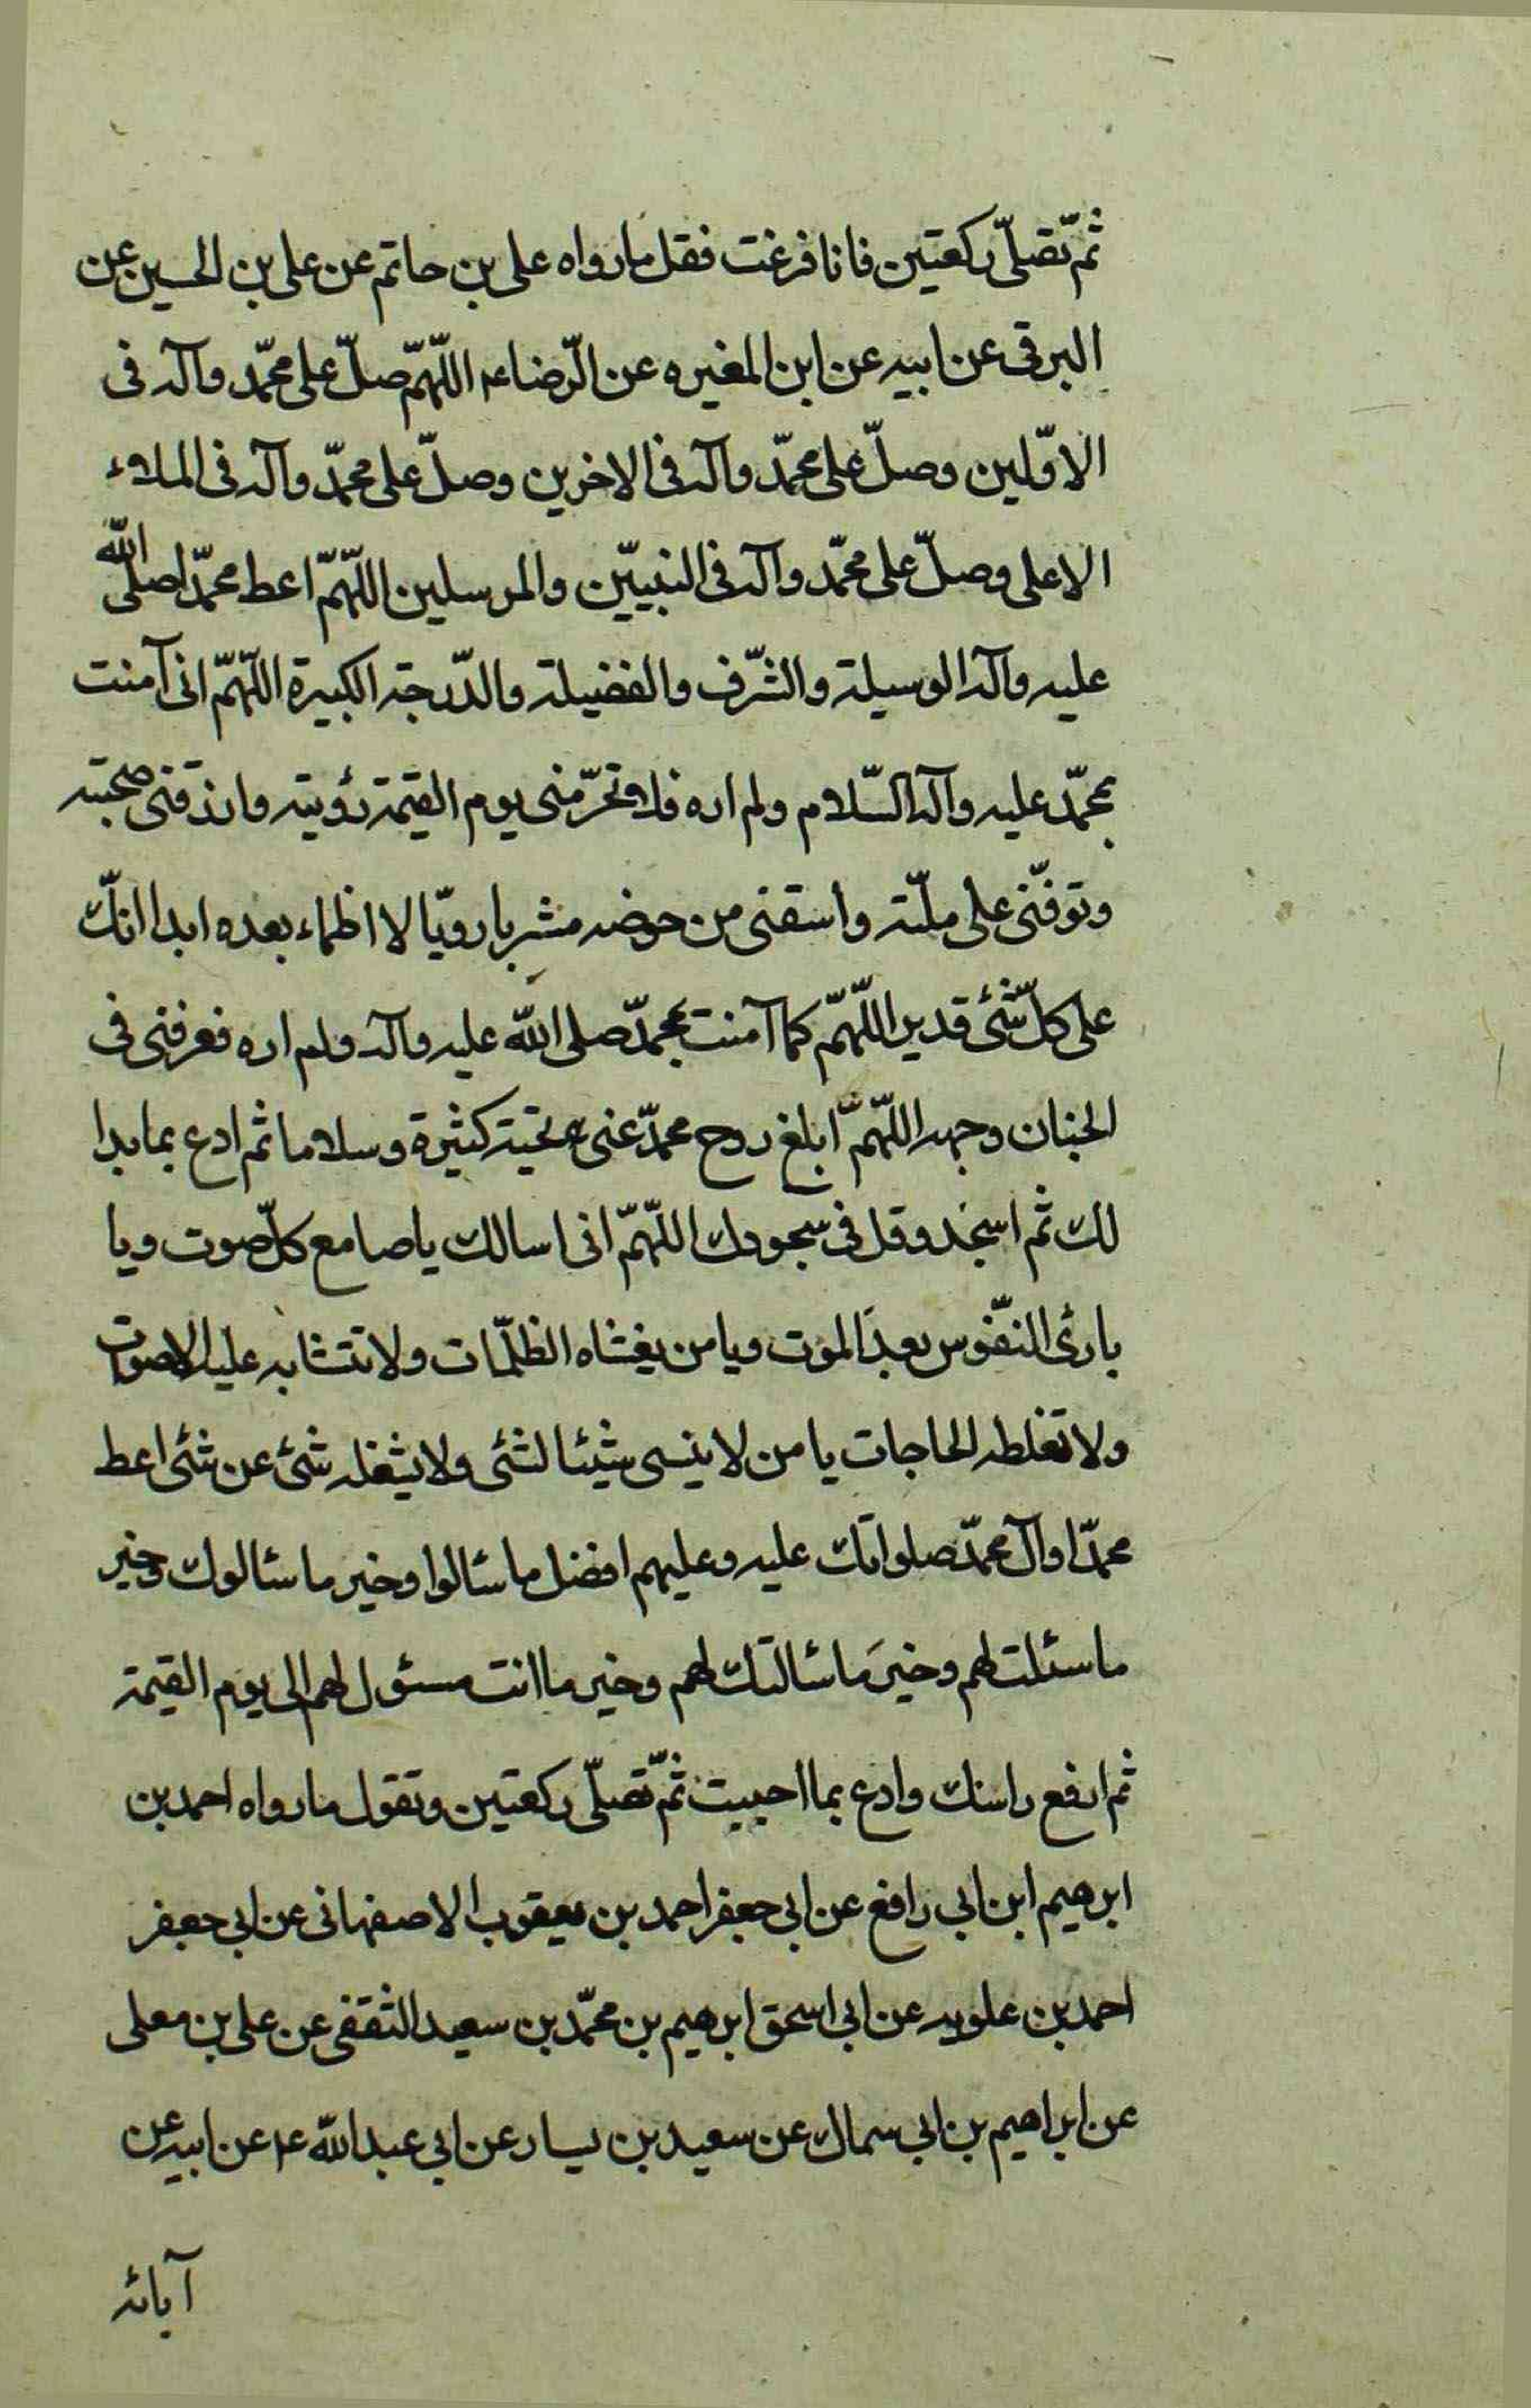 ثمّ تصلّى ركعتين فاذا فرغت فقل مارواه على بن حاتم عن على بن الحسين عن
البرقى عن ابيه عن ابن المغيره عن الرّضاء اللّهمّ صلّ على محمّد وآله فى
الاوّلين وصلّ على محمّد وآله فى الاخرين وصلّ على محمّد وآله فى الملاء
الاعلى وصلّ على محمّد وآله فى النبيّين والمرسلين اللّهمّ اعط محمّدا صلى الله
عليه وآله الوسيلة والشّرف والفضيلة والدّرجة الكبيرة اللّهمّ انى آمنت
بمحمّد عليه وآله السّلام ولم اره فلا تحرّمنى يوم القيمة رؤيته وارزقنى صحبته
وتوفّنى على ملّته واسقنى من حوضه مشربا رويّا لا اظماء بعده ابدا انّك
على كلّ شئ قدير اللّهمّ كما آمنت بمحمّد صلى الله عليه وآله ولم اره فعرفنى فى
الجنان وجهه اللّهمّ ابلغ روح محمّد عنى تحية كثيرة وسلاما ثم ادع بما بدا
لك ثم اسجد وقل فى سجودك اللّهمّ انى اسالك ياصامع كلّ صوت ويا
بارئ النّفوس بعد الموت ويامن يغشاه الظلّمات ولا تتشابه عليه الاصوات
ولا تغلطه الحاجات يا من لا ينسى شيئا لشئ ولا يشغله شئ عن شئ اعط
محمّدا وآل محمّد صلواتك عليه وعليهم افضل ما سئالوا وخير ما سئالوك وخير
ما سئلت لهم وخير ما سئالتك لهم وخير ما انت مسئول لهم الى يوم القيمة
ثم ارفع راسك وادع بما احببت ثمّ تصلّى ركعتين وتقول مارواه احمد بن
ابرهيم ابن ابى رافع عن ابى جعفر احمد بن يعقوب الاصفهانى عن ابى جعفر
احمد بن علويه عن ابى اسحق ابرهيم بن محمّد بن سعيد الثقفى عن على بن معلى
عن ابراهيم بن ابى سمال عن سعيد بن يسار عن ابى عبد الله ع عن ابيه عن
آبائه